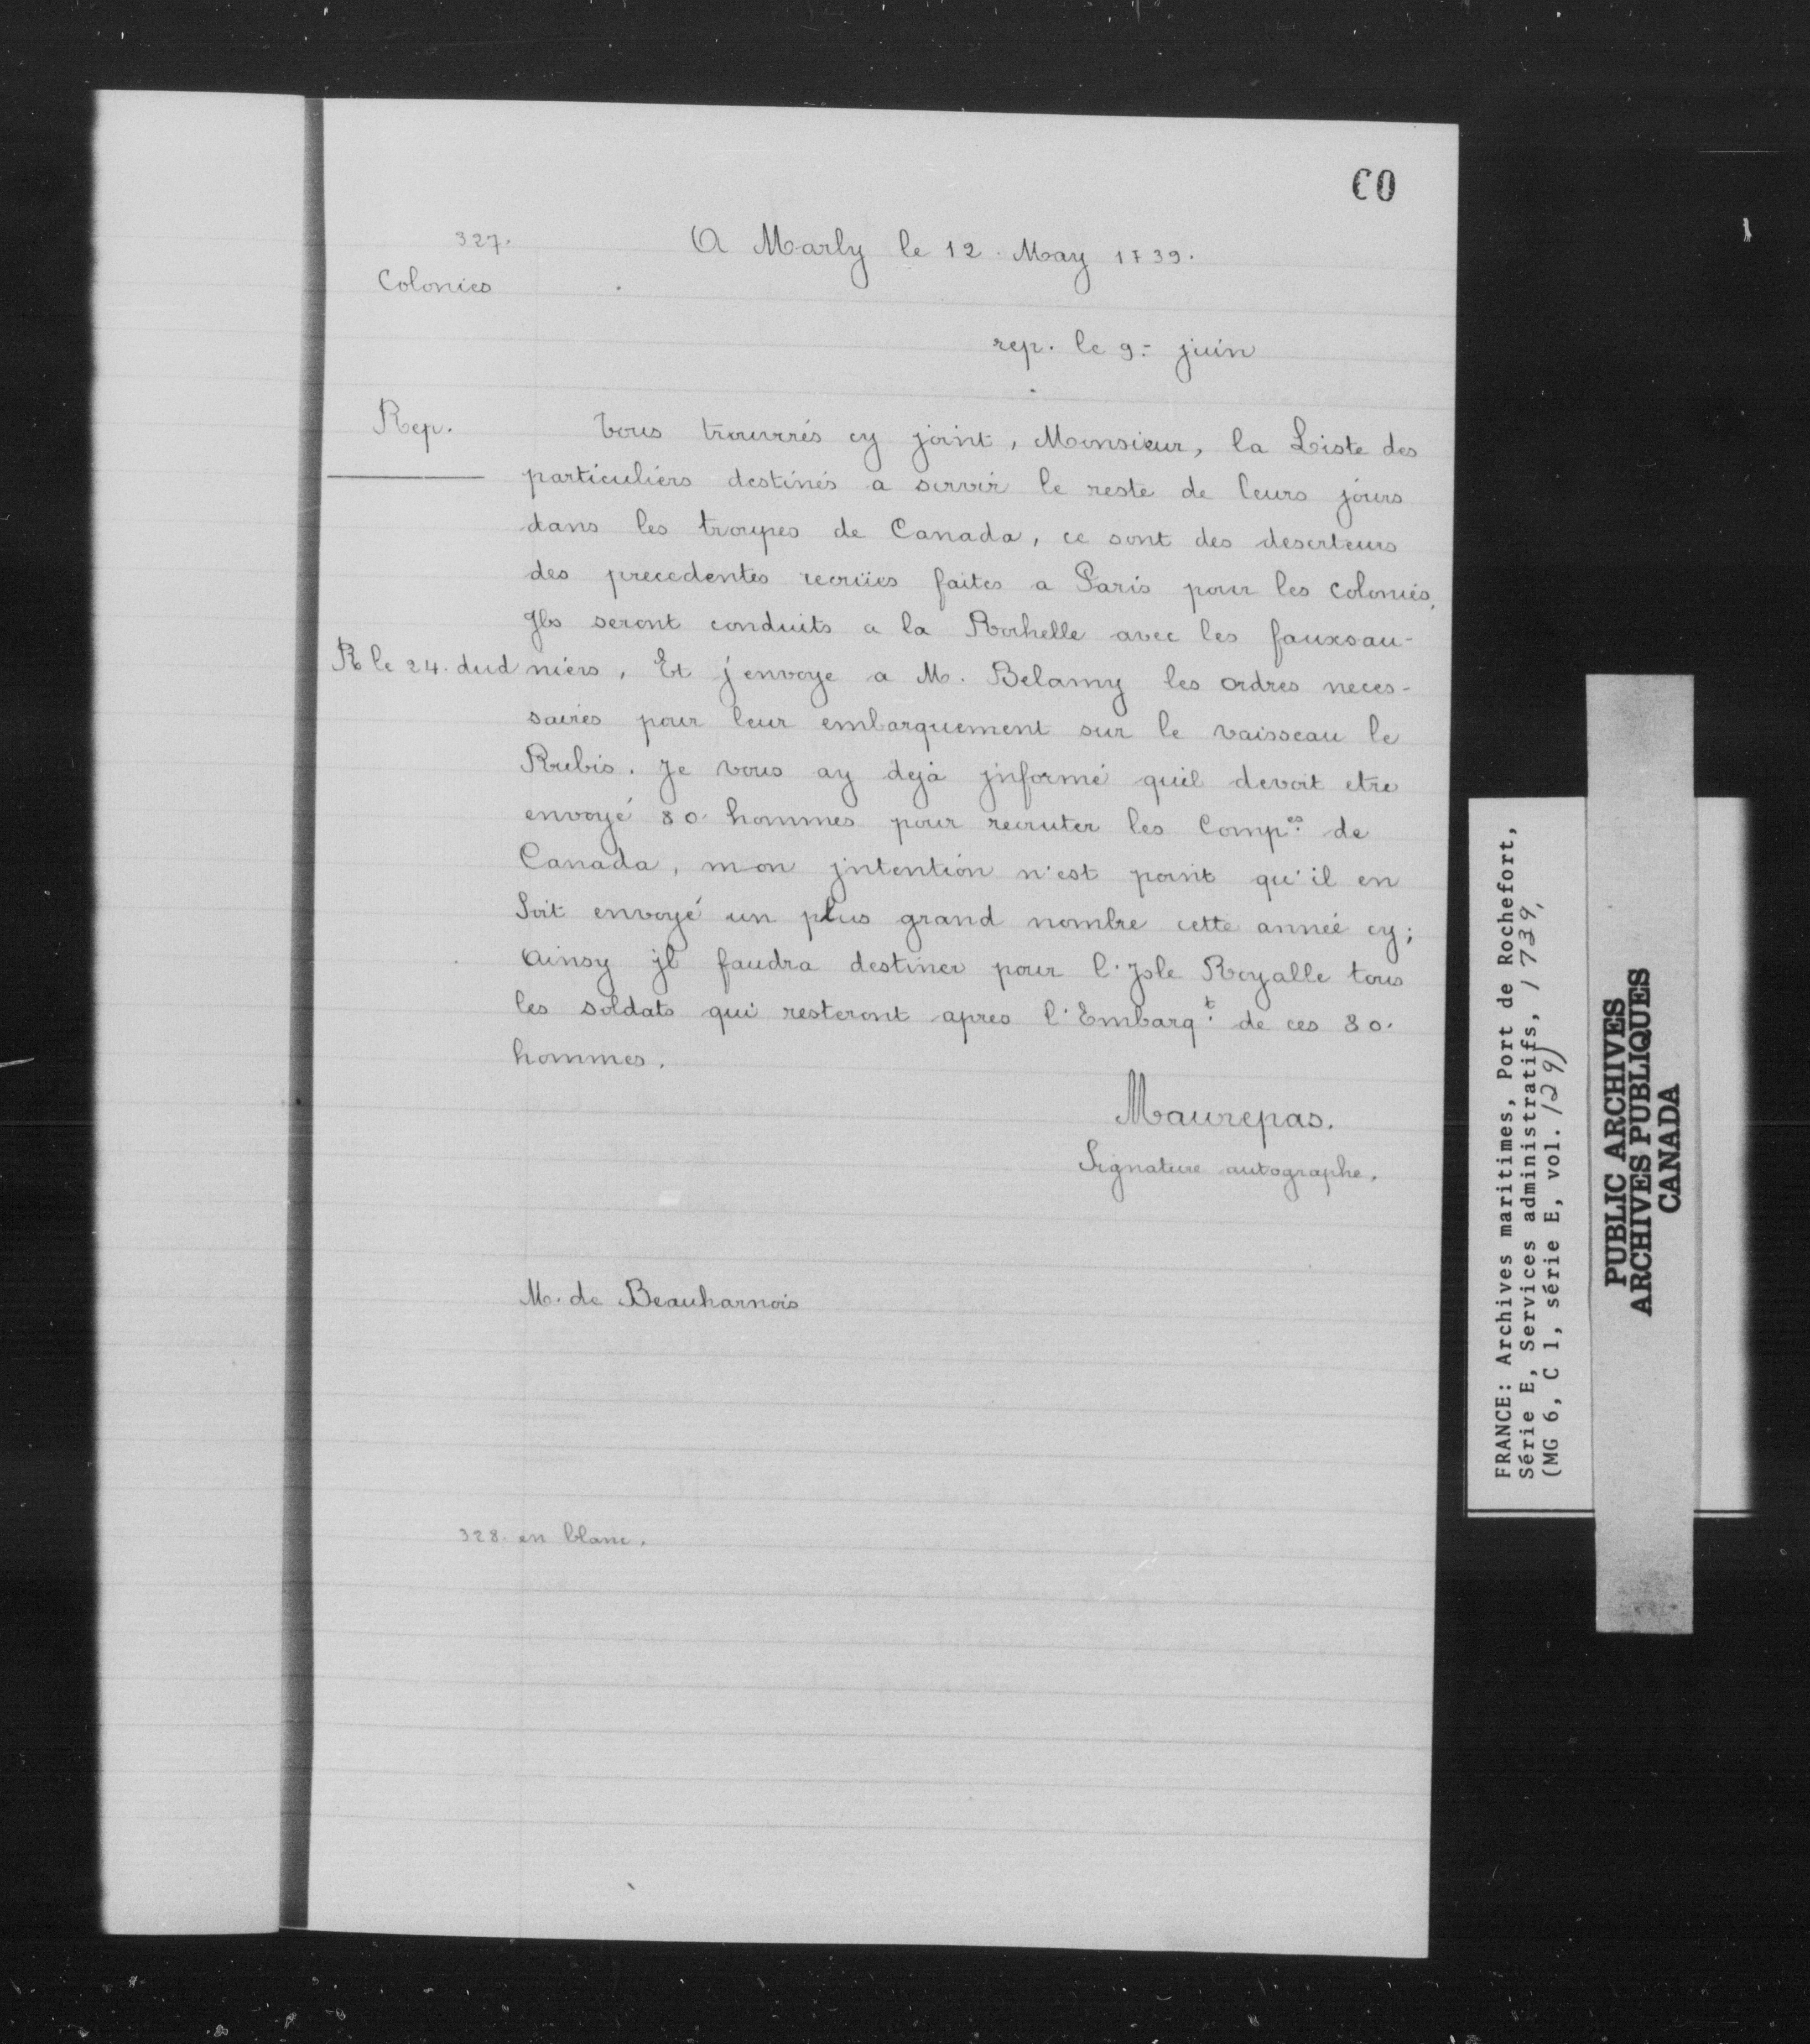 60
327.
A Marly le 12. May 1739.
Colonies
rep. le 9.- juin
Rep.
Vous trouvrés cy joint, Monsieur, la Liste des
particuliers destinés a servir le reste de leurs jours
dans les troupes de Canada, ce sont des deserteurs
des precedentes recrües faites a Paris pour les colonies,
Jls seront conduits a la Rochelle avec les fauxsau-
R le 24. dud
niers, Et j'envoye a M. Belamy les ordres neces-
saires pour leur embarquement sur le vaisseau le
Rubis. Je vous ay dejà jnformé quil devoit etre
envoyé 80. hommes pour recruter les Comp.es de
Canada, mon jntention n'est point qu'il en
Soit envoyé un plus grand nombre cette année cy;
Ainsy jl faudra destiner pour l'Jsle Royalle tous
les soldats qui resteront apres l'Embarq.t de ces 80.
hommes.
Maurepas.
Signature autographe.
M. de Beauharnois
328. en blanc.
FRANCE: Archives maritimes, Port de Rochefort,
Série E, Services administratifs, 1739,
(MG 6, C 1, série E, vol. 129)
PUBLIC ARCHIVES
ARCHIVES PUBLIQUES
CANADA